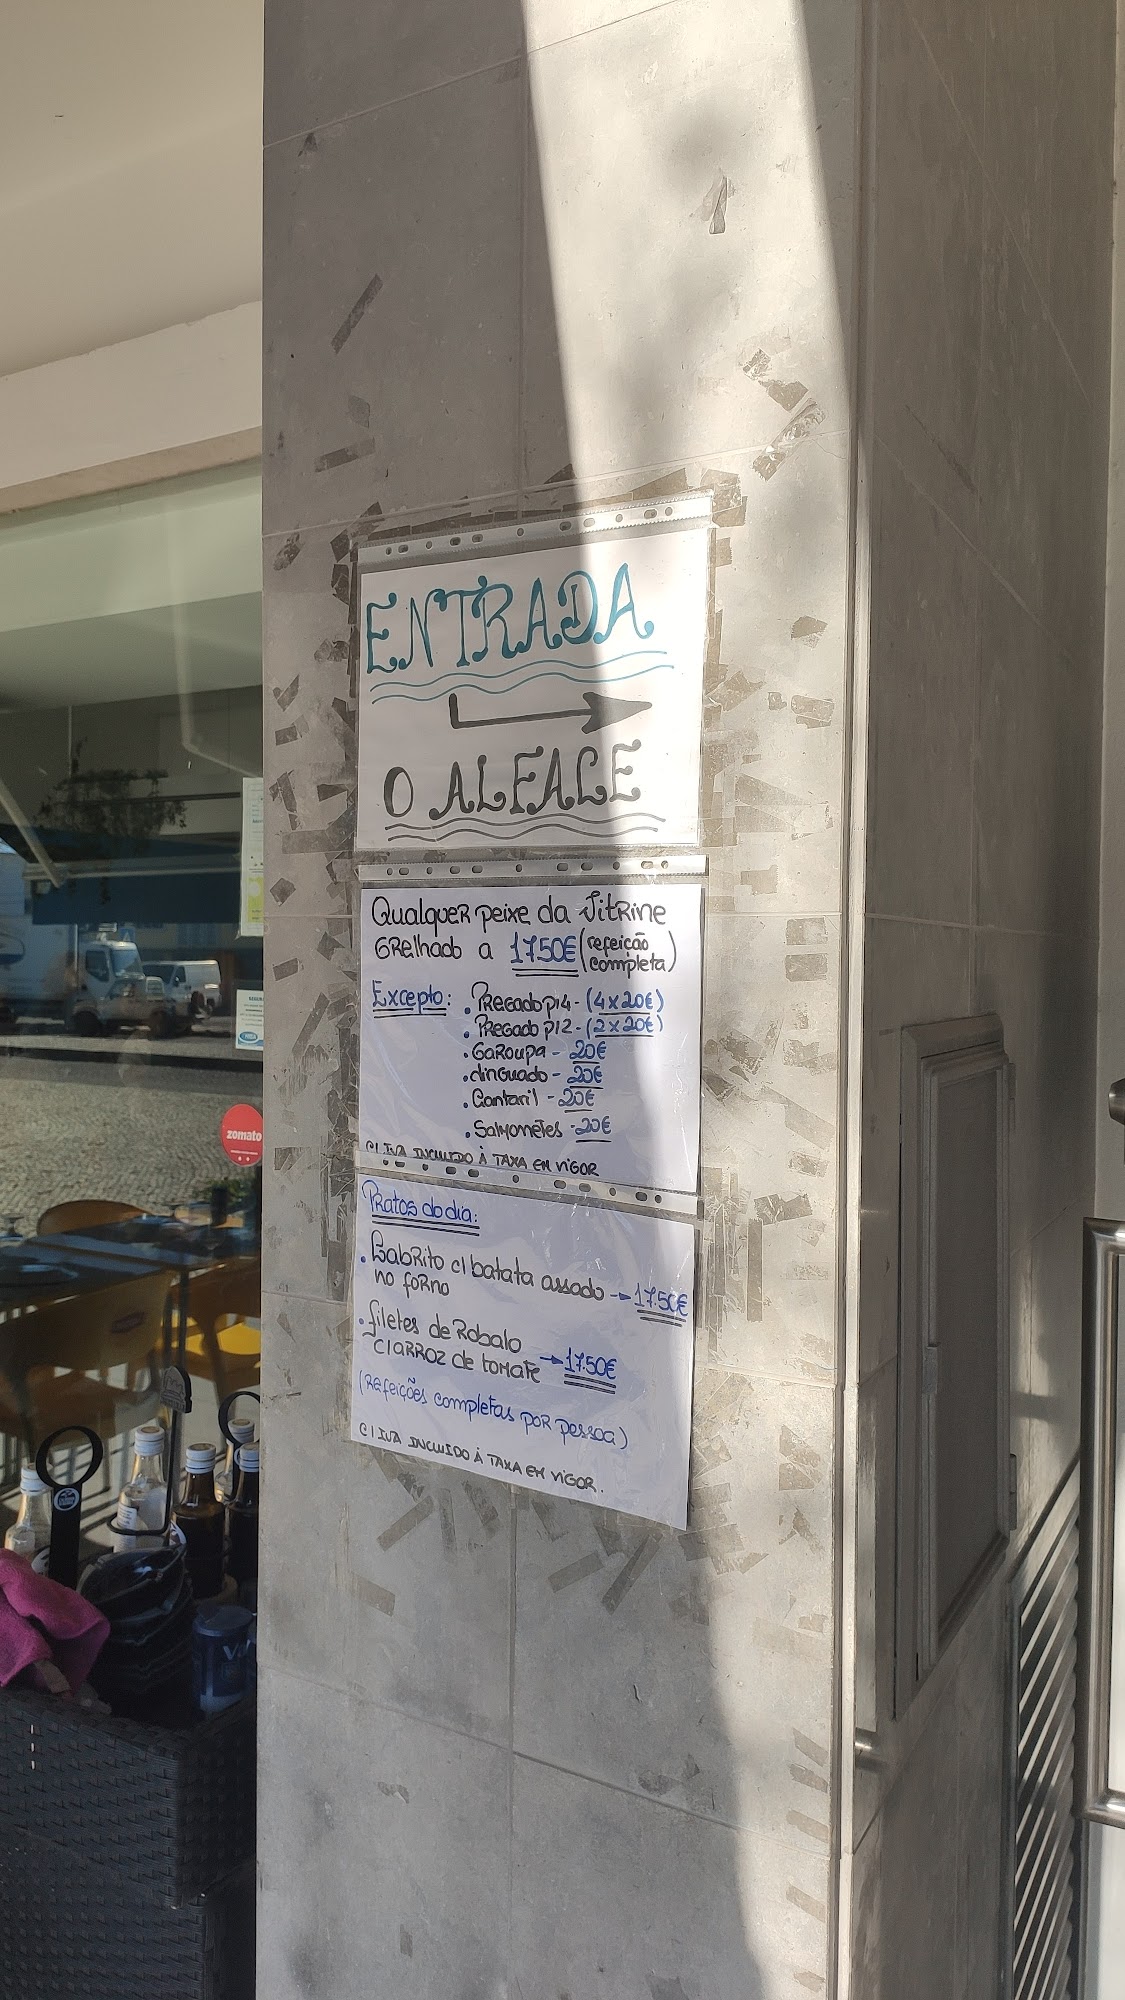 ENTRADA
O ALFACE
Qualquer peixe da Vitrine
Grelhado a 17.50€ (refeição completa)
Excepto: . Pregado p/4 - (4x20€)
. Pregado p/2 - (2x20€)
. Garoupa - 20€
. Linguado - 20€
. Cantaril - 20€
. Salmonetes - 20€
C/ IVA INCLUIDO À TAXA EM VIGOR
Pratos do dia:
. Cabrito c/ batata assado → 17.50€
no forno
. filetes de Robalo
c/ arroz de tomate → 17.50€
(Refeições completas por pessoa)
C/ IVA INCLUIDO À TAXA EM VIGOR.
zomato